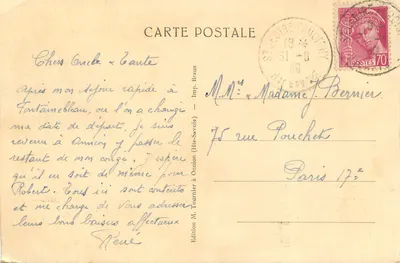 CARTE POSTALE
Chers Oncle & Tante
Après mon séjour rapide à
Fontainebleau, où l'on a changé
ma date de départ, je suis
revenu à Annion y passer le
restant de mon congé. J'espère
qu'il en soit de même pour
Robert. Tous ici sont contents
et me charge de vous adresser
leurs bons baisers affectueux
René
Edition M. Tournier à Onnion (Hte-Savoie) - Imp. Braun
19 34
31 - 8
POSTES
70
Mr et Madame J. Bernier
75 rue Pouchet
Paris 17e